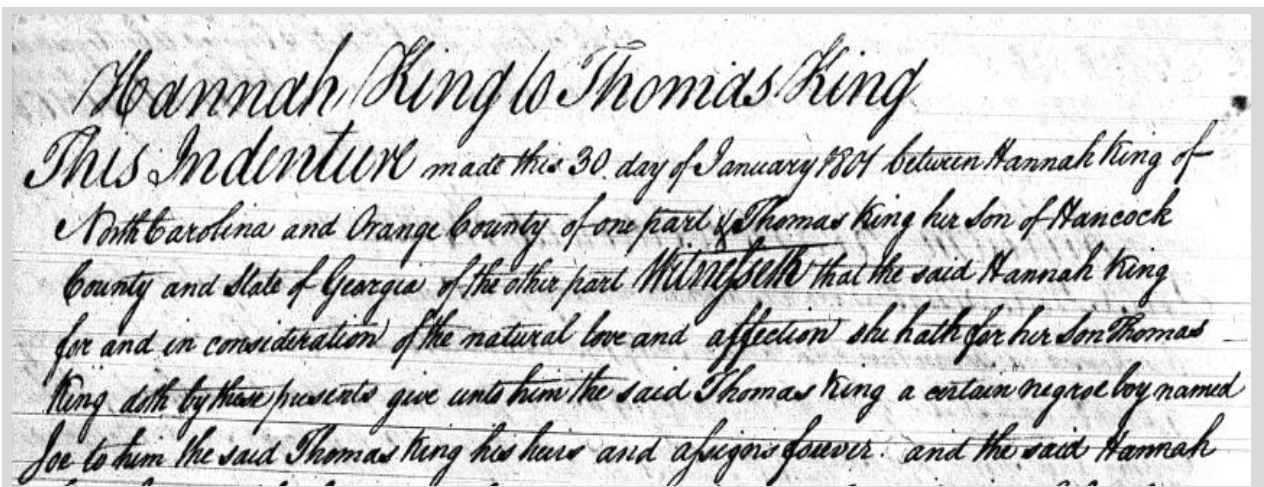 Hannah King to Thomas King
This Indenture made this 30. day of January 1801 between Hannah King of
North Carolina and Orange County of one part & Thomas King her son of Hancock
County and State of Georgia of the other part Witnesseth that the said Hannah King
for and in consideration of the natural love and affection she hath for her Son Thomas
King doth by these presents give unto him the said Thomas King a certain negroe boy named
Joe to him the said Thomas King his heirs and assigns forever. and the said Hannah